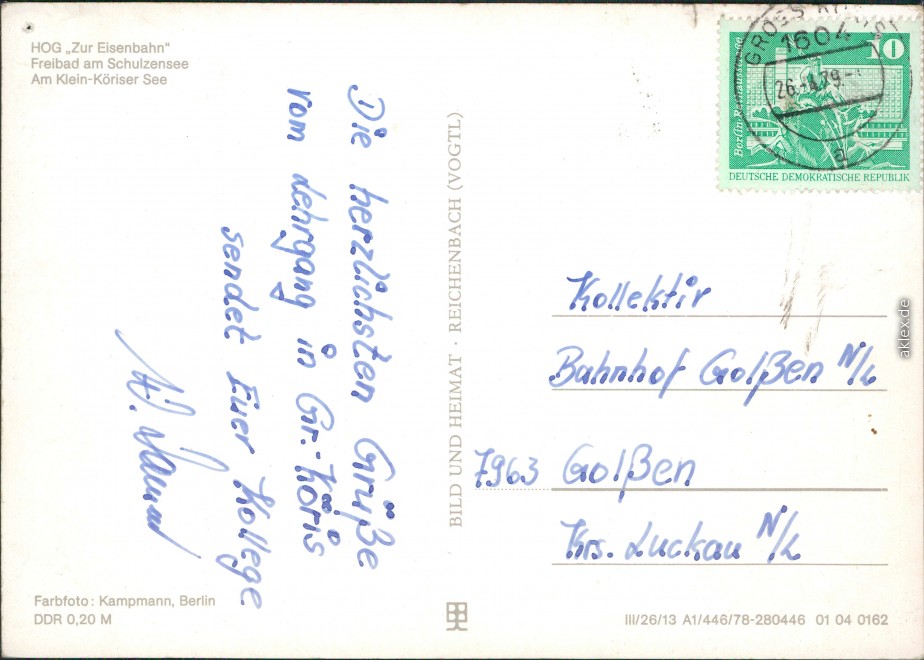 HOG „Zur Eisenbahn"
Freibad am Schulzensee
Am Klein-Köriser See
Die herzlichsten Grüße
vom Lehrgang in Gr.-Köris
sendet Euer Kollege
Farbfoto: Kampmann, Berlin
DDR 0,20 M
BILD UND HEIMAT · REICHENBACH (VOGTL)
1604
26.
79.-
a
10
Berlin, Rathausstraße
DEUTSCHE DEMOKRATISCHE REPUBLIK
Kollektiv
Bahnhof Golßen N/L
7963 Golßen
Krs. Luckau N/L
III/26/13 A1/446/78-280446 01 04 0162
aklex.de